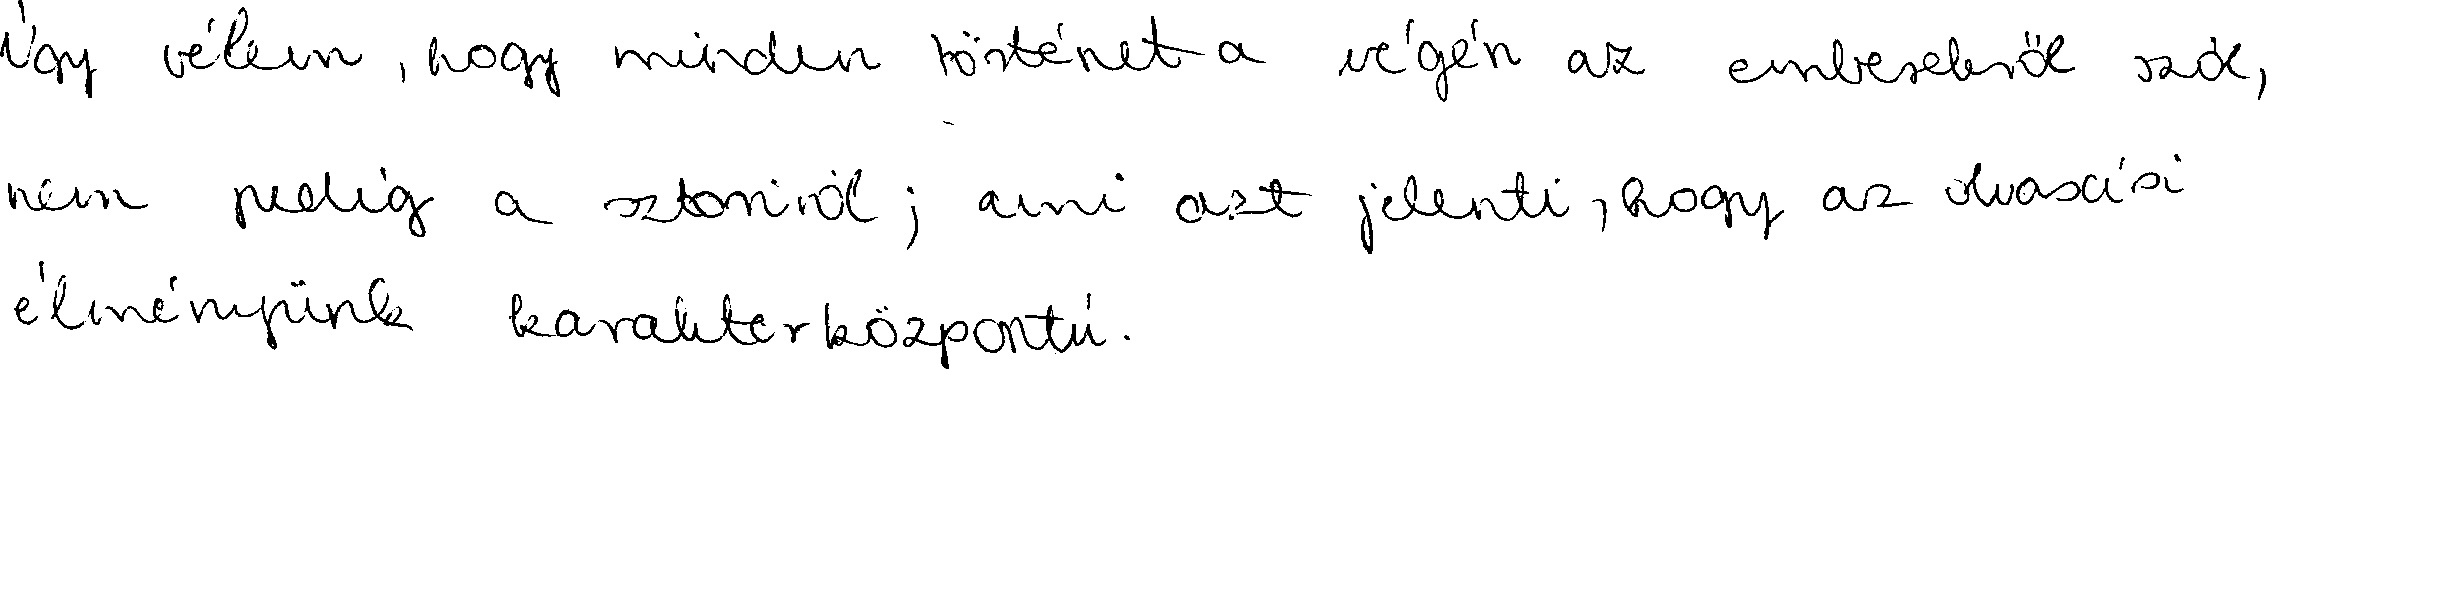 Úgy vélem, hogy minden történet a végén az emberekről szól,
nem pedig a sztoriról; ami azt jelenti, hogy az olvasási
élményünk karakterközpontú.